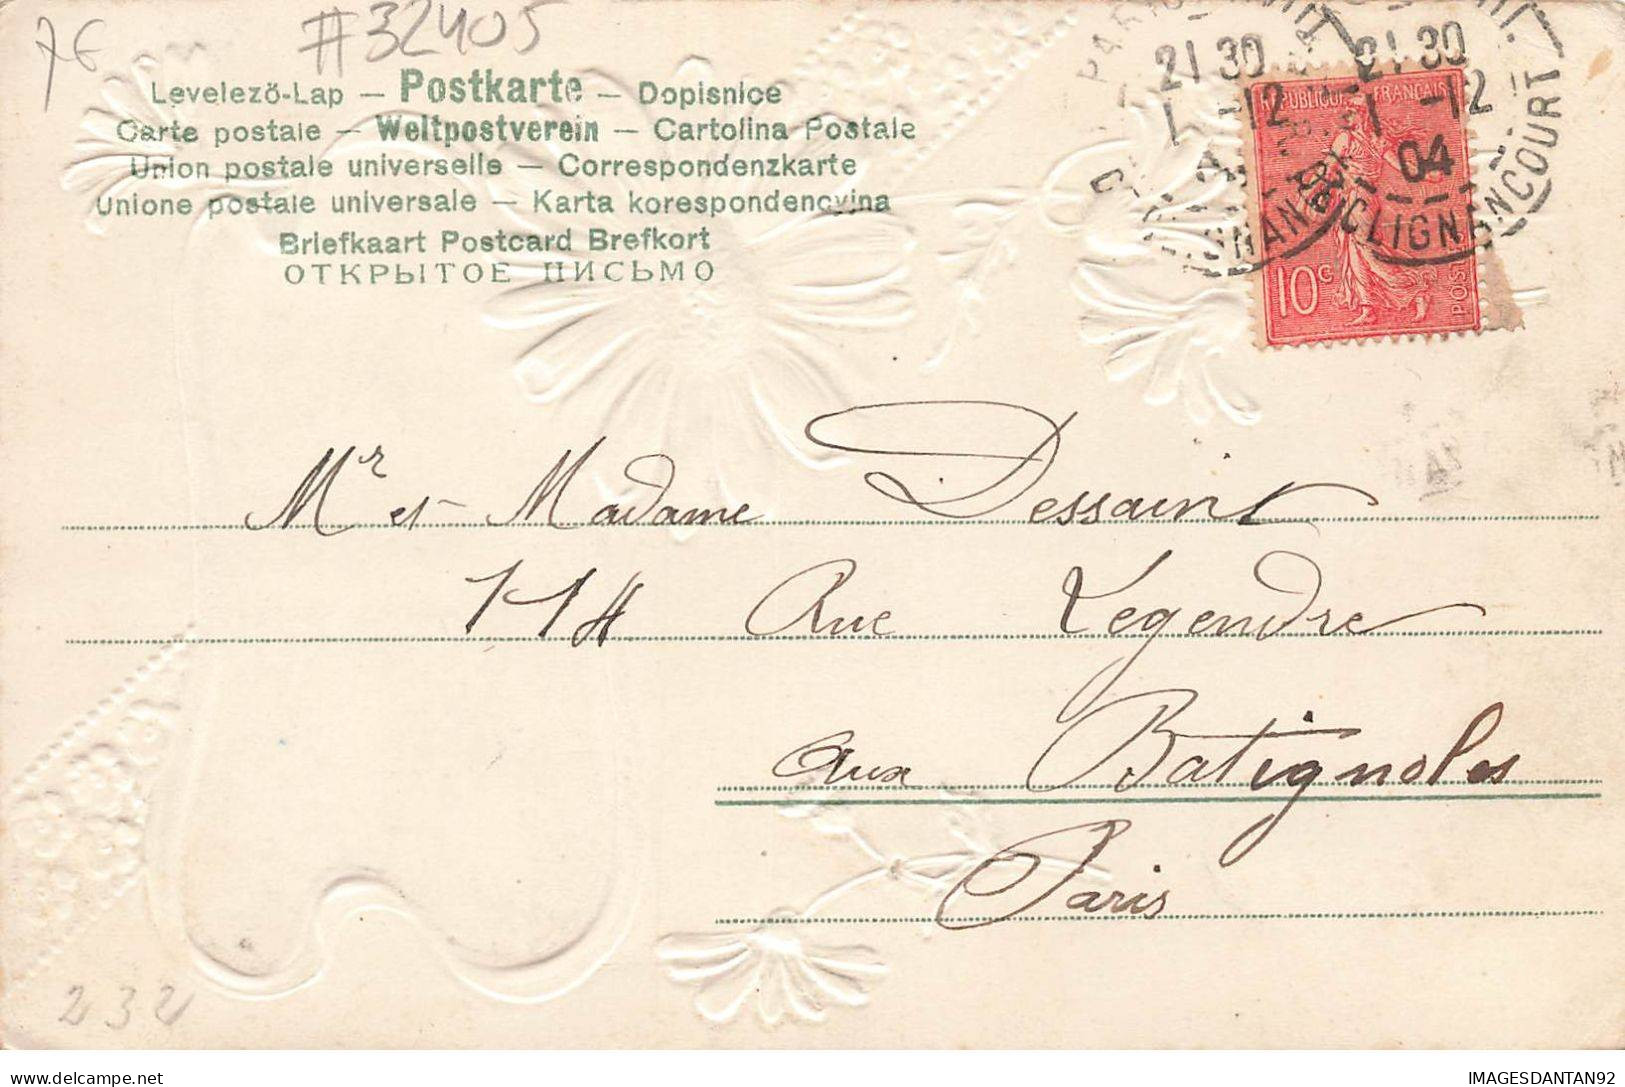 7€
#32405
Levelező-Lap — Postkarte — Dopisnice
Carte postale — Weltpostverein — Cartolina Postale
Union postale universelle — Correspondenzkarte
Unione postale universale — Karta korespondencyjna
Briefkaart Postcard Brefkort
ОТКРЫТОЕ ПИСЬМО
21 30
1 -12
21 30
1 -12
04
CLIGNANCOURT
REPUBLIQUE FRANÇAISE
10 c
POST
Mr et Madame Dessaint
114 Rue Legendre
aux Batignoles
Paris
232
IMAGESDANTAN92